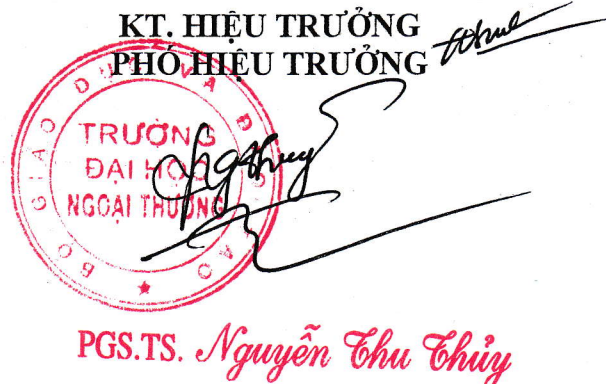 KT. HIỆU TRƯỞNG
PHÓ HIỆU TRƯỞNG
BỘ GIÁO DỤC VÀ ĐÀO TẠO
TRƯỜNG
ĐẠI HỌC
NGOẠI THƯƠNG
PGS.TS. Nguyễn Thu Thủy